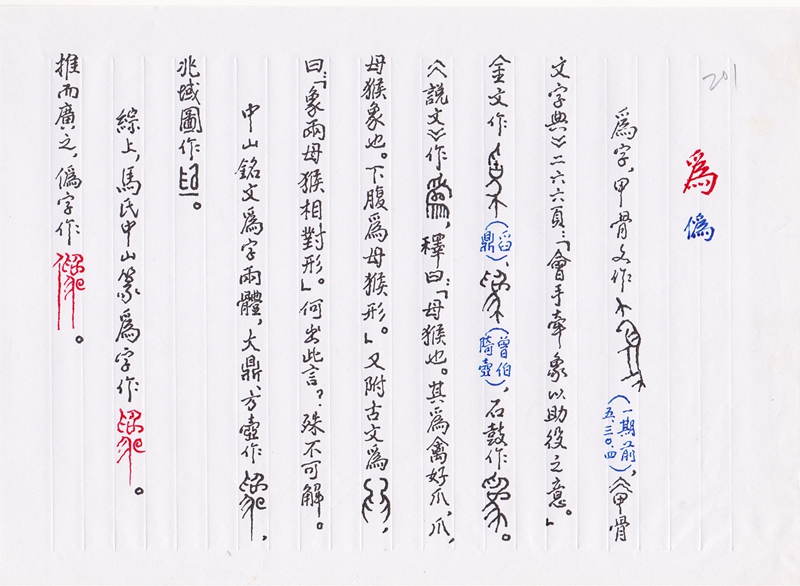 201
爲 僞
爲字，甲骨文作（一期前五.三〇.四），《甲骨
文字典》二六六頁：「會手牽象以助役之意。」
金文作（舀鼎）、（曾伯陭壺），石鼓作。
《說文》作，釋曰：「母猴也。其爲禽好爪，爪，
母猴象也。下腹爲母猴形。」又附古文爲，
曰：「象兩母猴相對形」。何出此言？殊不可解。
中山銘文爲字兩體，大鼎、方壺作，
兆域圖作。
綜上，馬氏中山篆爲字作。
推而廣之，僞字作。